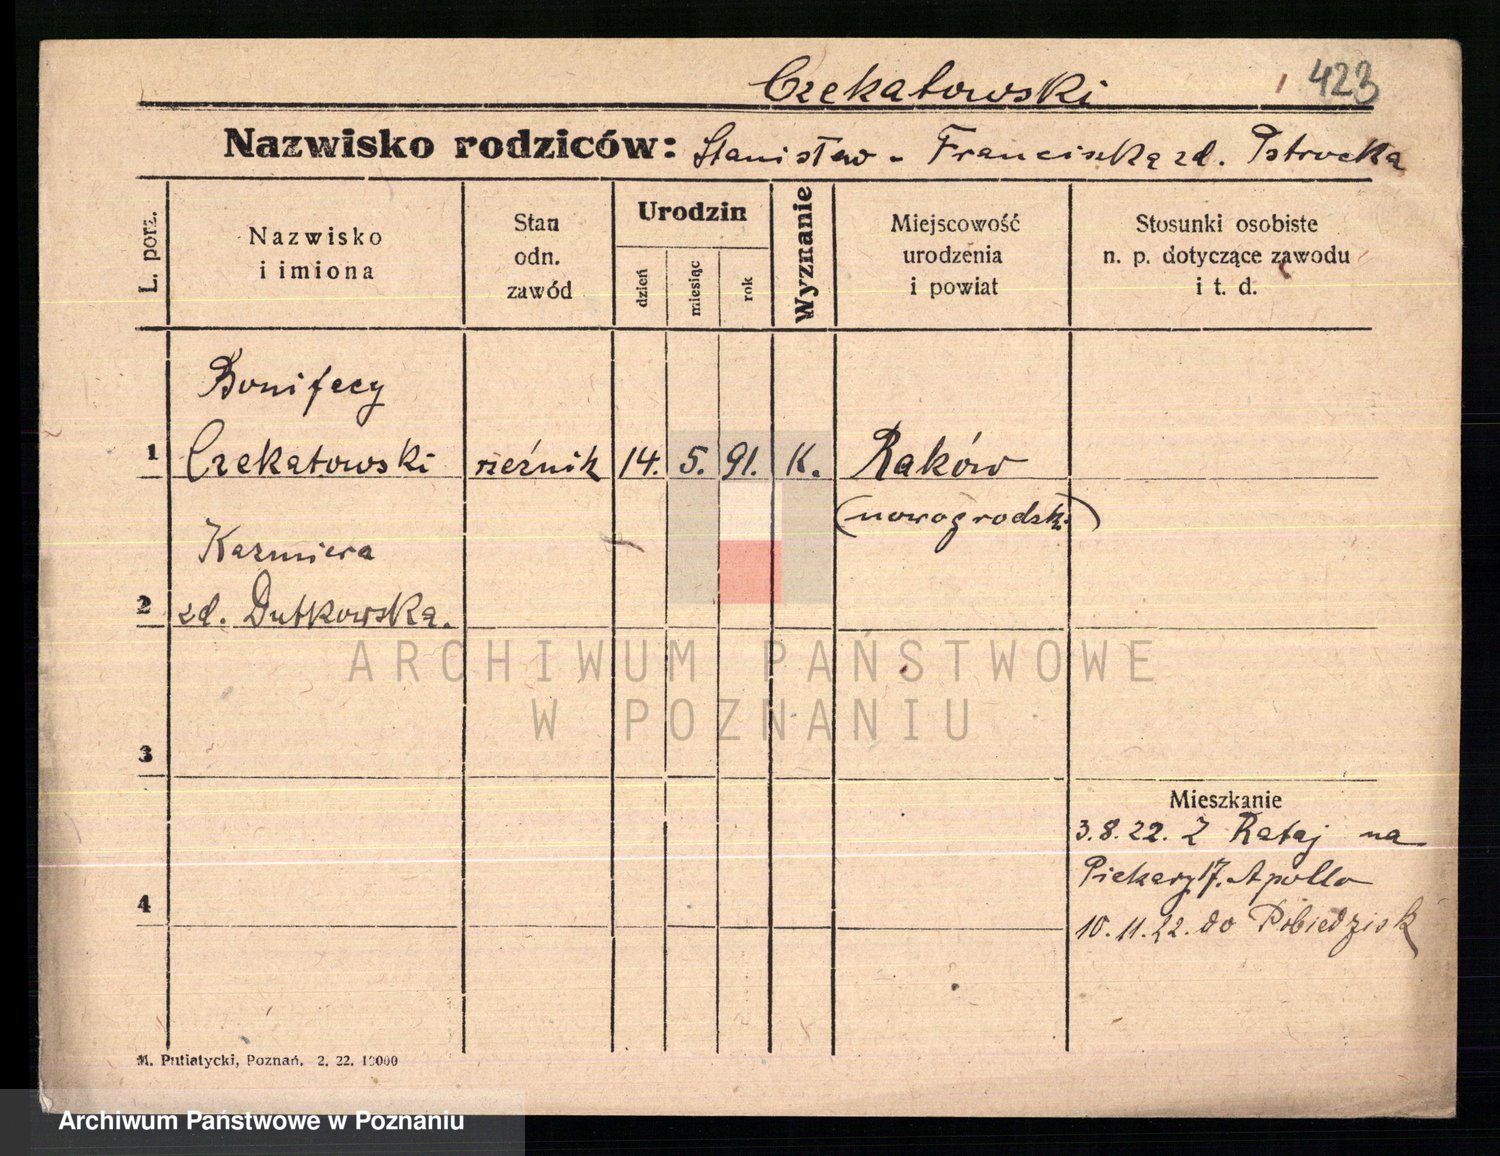 Czekatowski 1 423
Nazwisko rodziców: Stanisław - Franciszka zd. Pstrocka
L. porz.
Nazwisko i imiona
Stan odn. zawód
Urodzin
dzień
miesiąc
rok
Wyznanie
Miejscowość urodzenia i powiat
Stosunki osobiste n. p. dotyczące zawodu i t. d.
Bonifecy
1 Czekatowski rzeźnik 14. 5. 91. K. Raków
(nowogrodzk.)
Kazmiera
2 zd. Dutkowska.
ARCHIWUM PAŃSTWOWE
W POZNANIU
3
Mieszkanie
3.8.22. Z Rataj na
Piekary 17. Apollo
4
10.11.22. do Pobiedzisk
M. Putiatycki, Poznań. 2. 22. 10000
Archiwum Państwowe w Poznaniu